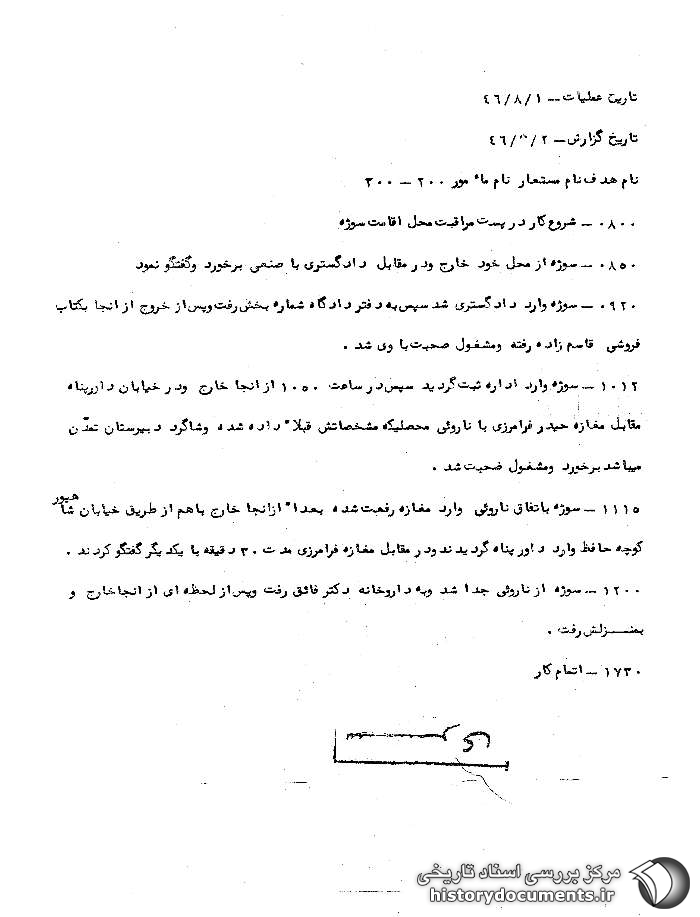 تاریخ عملیات – ٤٦/٨/١
تاریخ گزارش – ٤٦/٨/٢
نام هدف نام مستعار نام مأمور ٢٠٠ – ٣٠٠
٠٨٠٠ – شروع کار در پست مراقبت محل اقامت سوژه
٠٨٥٠ – سوژه از محل خود خارج ودر مقابل دادگستری با صنعی برخورد وگفتگو نمود
٠٩٢٠ – سوژه وارد دادگستری شد سپس به دفتر دادگاه شماره بخش رفت وپس از خروج از انجا بکتاب
فروشی قاسم زاده رفته ومشغول صحبت با وی شد .
١٠١٢ – سوژه وارد اداره ثبت گردید سپس در ساعت ١٠٥٠ از انجا خارج ودر خیابان داررپناه
مقابل مغازه حیدر فرامرزی با ناروئی محصلیکه مشخصاتش قبلاً داده شده وشاگرد دبیرستان تمدّن
میباشد برخورد ومشغول ضحبت شد .
١١١٥ – سوژه باتفاق ناروئی وارد مغازه رفعت شده بعداً ازانجا خارج باهم از طریق خیابان شاهپور
کوچه حافظ وارد داور پناه گردیدند ودر مقابل مغازه فرامرزی مدت ٣٠ دقیقه با یکدیگر گفتگو کردند .
١٢٠٠ – سوژه از ناروئی جدا شد وبه داروخانه دکتر فائق رفت وپس از لحظه ای از انجا خارج و
بمنـــزلش رفت .
١٧٣٠ – اتمام کار
مرکز بررسی اسناد تاریخی
historydocuments.ir